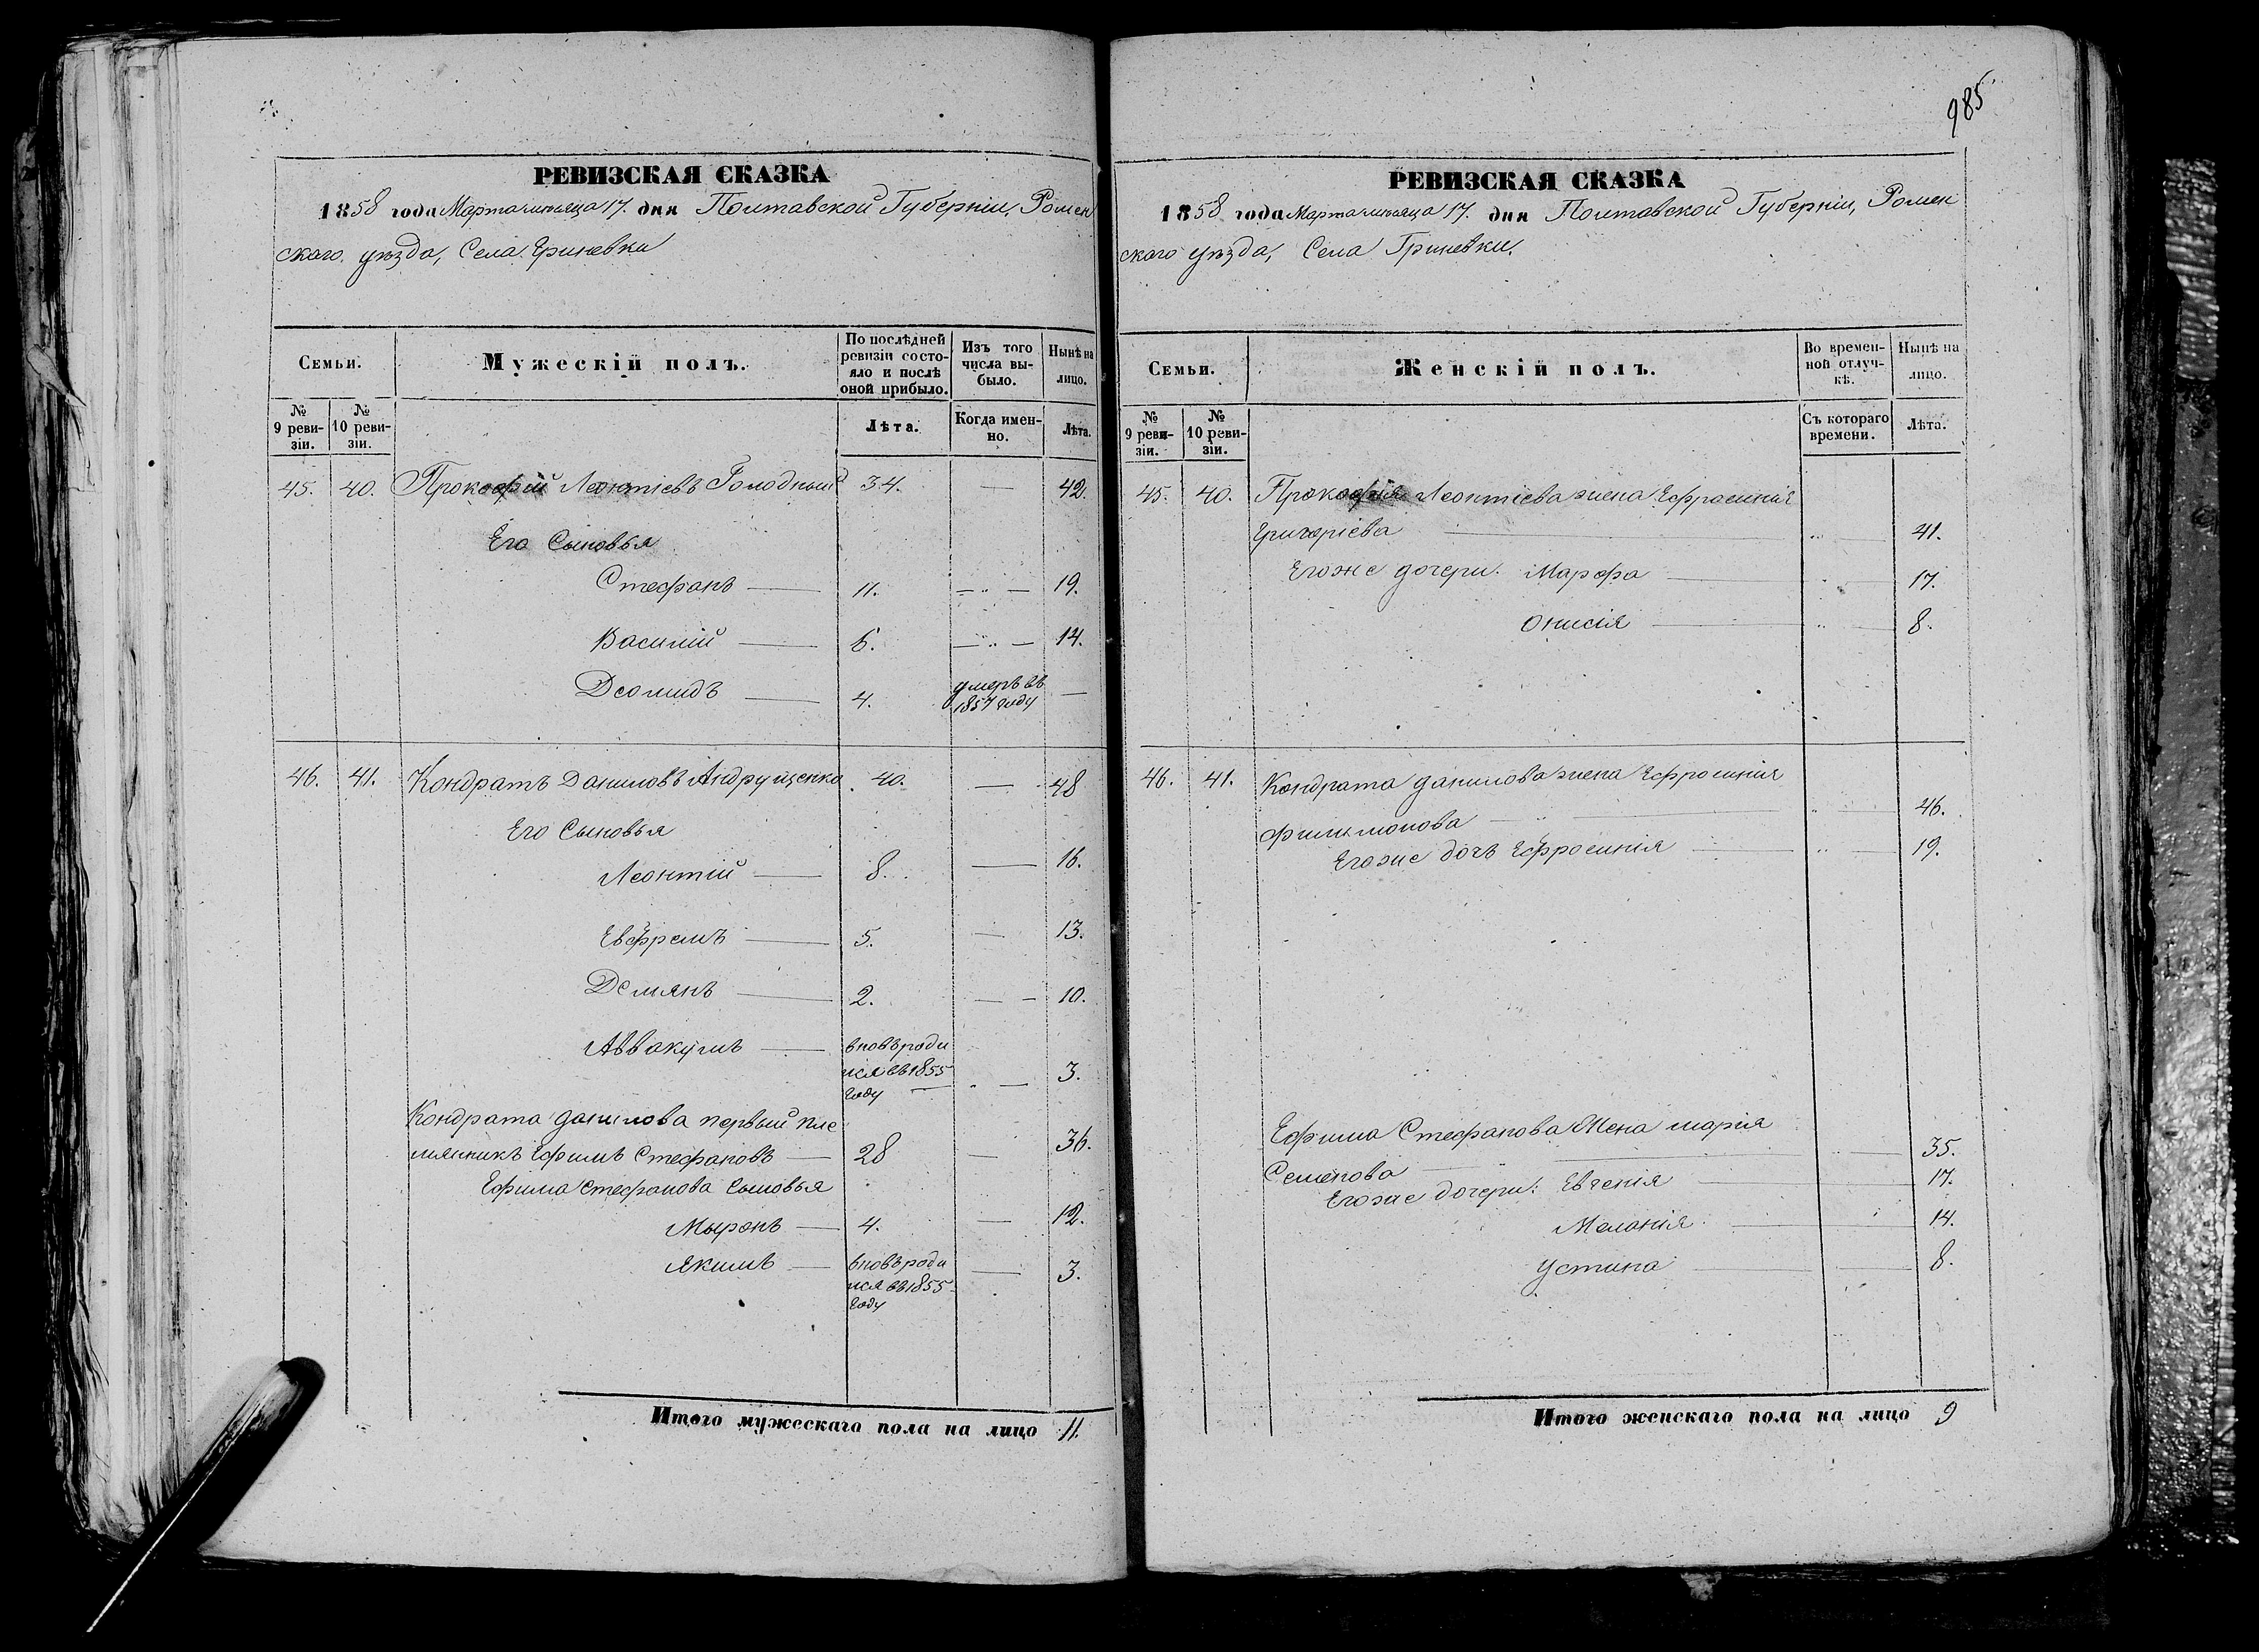 РЕВИЗСКАЯ СКАЗКА
1858 года Марта месяца 17. дня Полтавской Губерніи, Ромен
скаго уезда, Села Гриневки
Семьи. Мужескій полъ. По послѣдней ревизіи состояло и послѣ оной прибыло. Изъ того числа выбыло. Нынѣ на лицо.
№ 9 ревизіи. № 10 ревизіи. Лѣта. Когда именно. Лѣта.
45. 40. Прокофій Леонтіевъ Голодный 34. — 42.
Его Сыновья
Стефанъ — 11. — „ — 19.
Василій — 6. — „ — 14.
Деомидъ — 4. умеръ въ 1857 году —
46. 41. Кондратъ Даниловъ Андрущенко 40. — 48
Его Сыновья
Леонтій — 8. — 16.
Евфремъ — 5. — 13.
Демянъ — 2. — — 10.
Аввакумъ — вновь роди
лся въ 1855 — 3.
году
Кондрата данилова первый пле
мянникъ Ефимъ Стефановъ — 28 — 36.
Ефима Стефанова Сыновья
Мыронъ — 4. — 12.
Якимъ — вновь роди
лся въ 1855 — 3.
году
Итого мужескаго пола на лицо 11.
985
РЕВИЗСКАЯ СКАЗКА
1858 года Марта месяца 17. дня Полтавской Губерніи, Ромен
скаго уезда, Села Гриневки.
Семьи. Женскій полъ. Во временной отлучкѣ. Нынѣ на лицо.
№ 9 ревизіи. № 10 ревизіи. Съ котораго времени. Лѣта.
45. 40. Прокофія Леонтіева жена Ефросинія
Григоріева — „ — 41.
Его же дочери: Марфа — „ — 17.
Онисія — „ — 8.
46. 41. Кондрата данилова жена Ефросинія
Филимонова — „ — 46.
Его же дочь Ефросинія — „ — 19.
Ефима Стефанова Жена марія
Семенова — „ — 35.
Его же дочери: Евгенія — 17.
Меланія — 14.
Устина — 8.
Итого женскаго пола на лицо 9